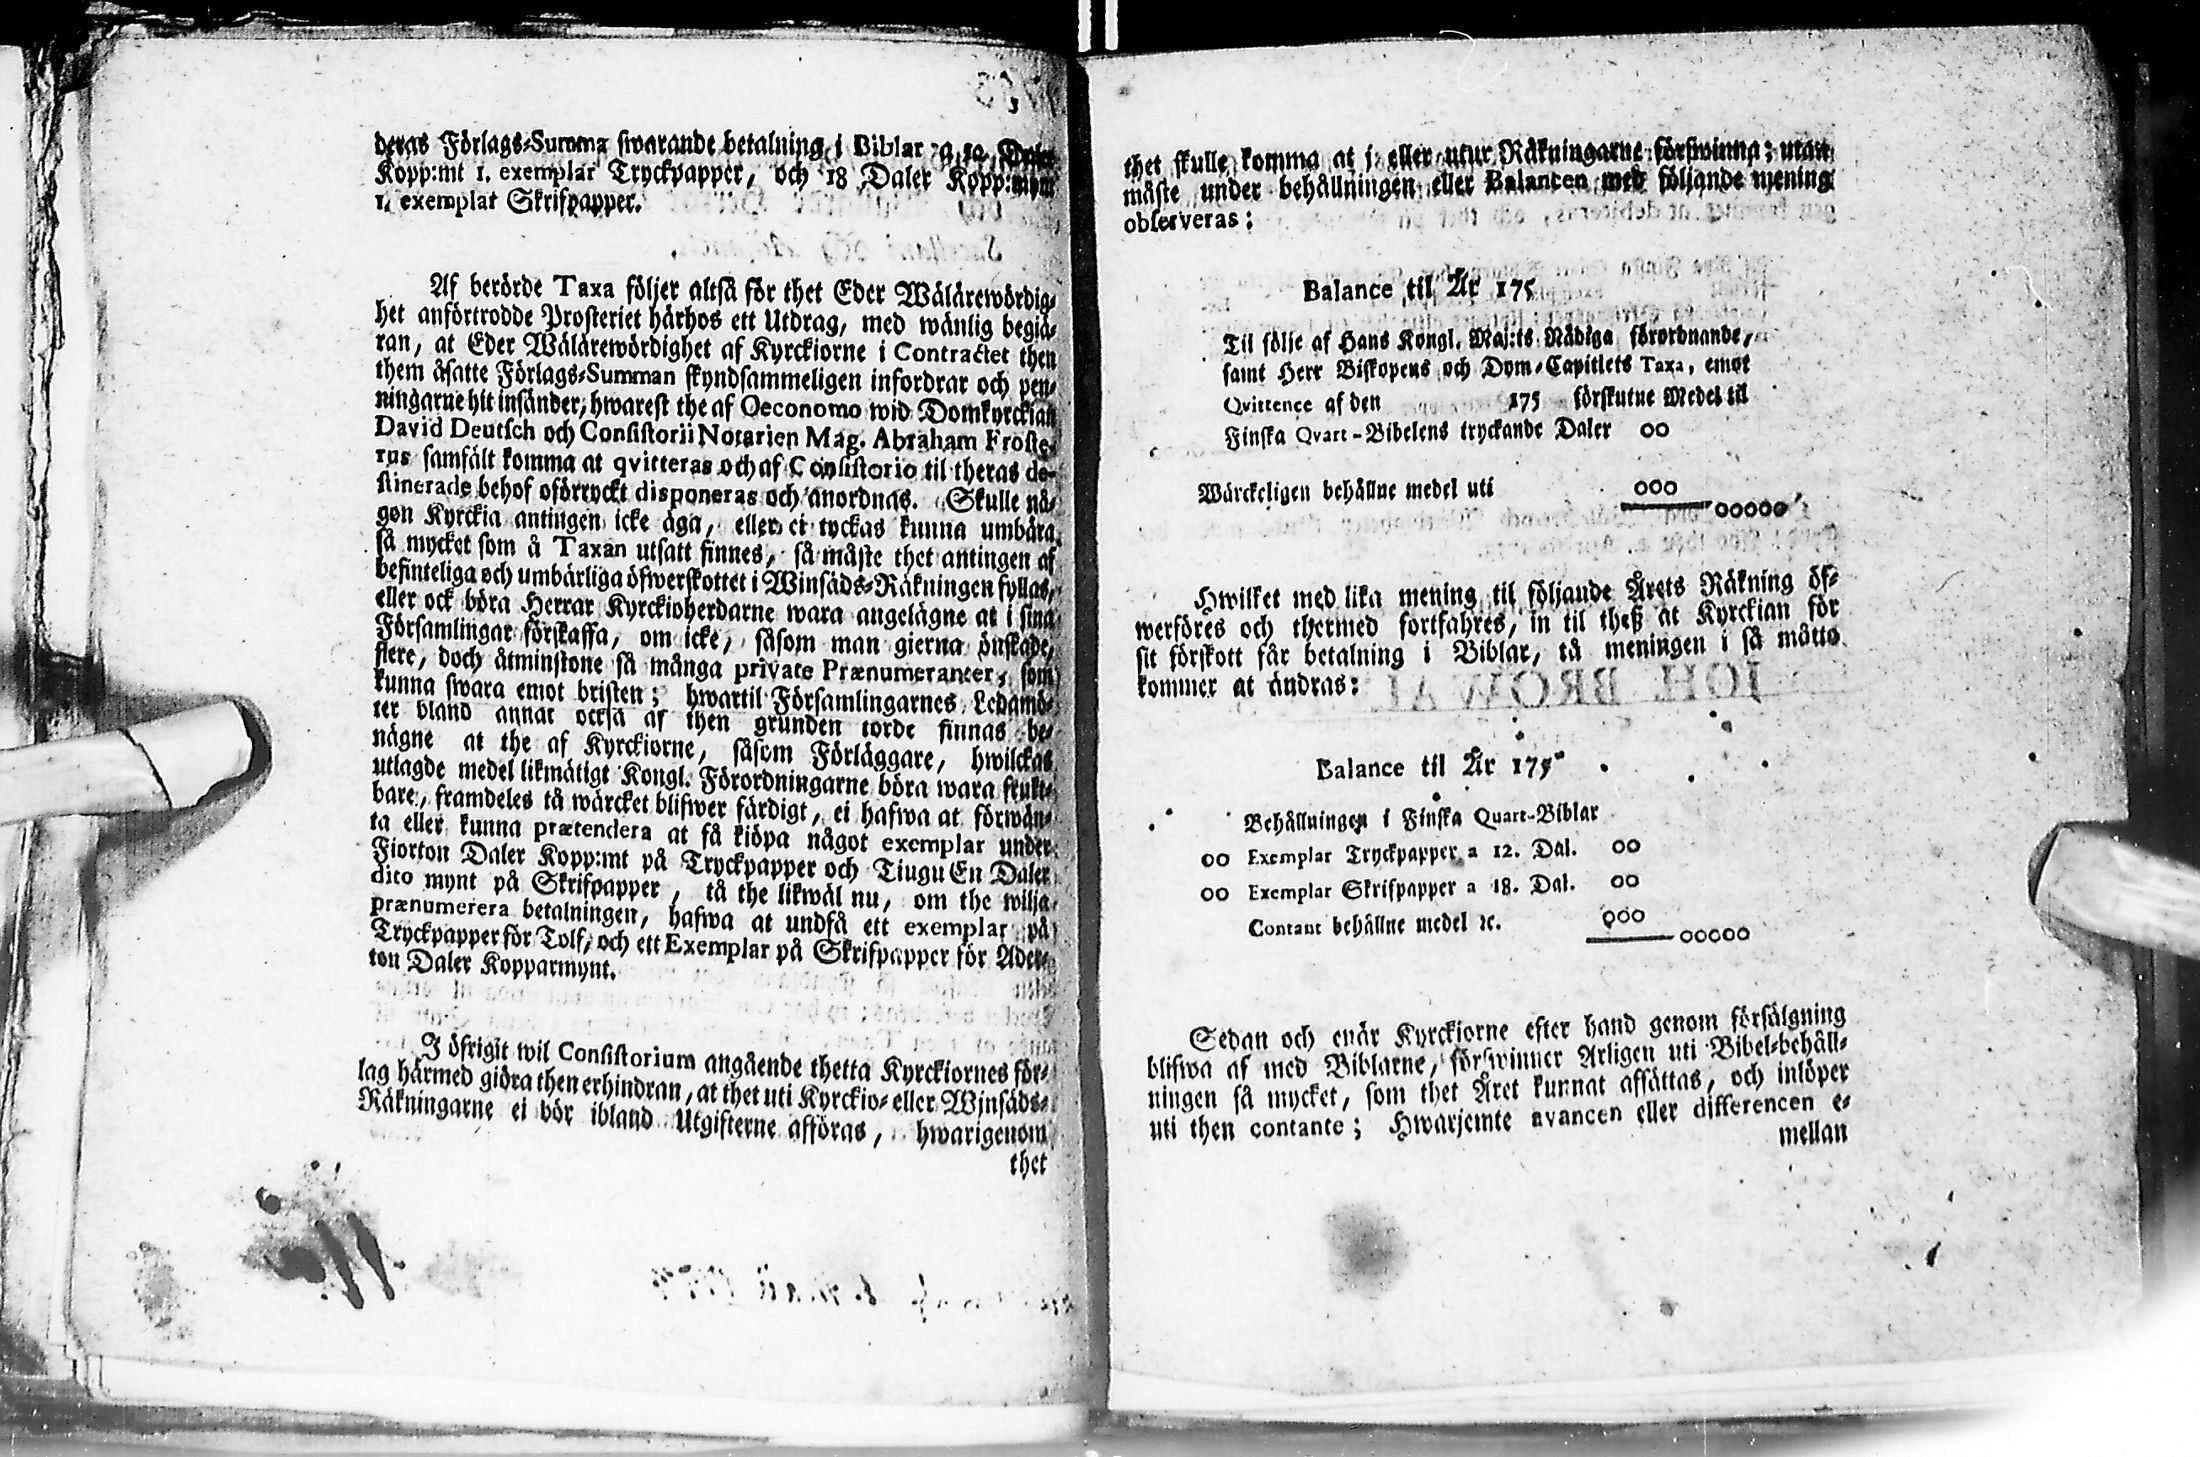 deras Förlags-Summa swarande betalning i Biblar a Daler
Kopp:mt 1. exemplar Tryckpapper, och 18 Daler Kopp:mynt
1. exemplar Skrifpapper.
Af berörde Taxa följer altså för thet Eder Wälärewördig-
het anförtrodde Prosteriet härhos ett Utdrag, med wänlig begiä-
ran, at Eder Wälärewördighet af Kyrckiorne i Contractet then
them åsatte Förlags-Summan skyndsammeligen infordrar och pen-
ningarne hit insänder, hwarest the af Oeconomo wid Domkyrckian
David Deutsch och Consistorii Notarien Mag. Abraham Froste-
rus samfält komma at qvitteras och af Consistorio til theras de-
stinerade behof oförryckt disponeras och anordnas. Skulle nå-
gon Kyrckia antingen icke äga, eller ei tyckas kunna umbära
så mycket som å Taxan utsatt finnes, så måste thet antingen af
befinteliga och umbärliga öfwerskottet i Winsäds-Räkningen fyllas,
eller ock böra Herrar Kyrckioherdarne wara angelägne at i sina
Församlingar förskaffa, om icke, såsom man gierna önskade,
flere, doch åtminstone så många private Prænumeranter, som
kunna swara emot bristen; hwartil Församlingarnes Ledamö-
ter bland annat också af then grunden torde finnas be-
nägne at the af Kyrckiorne, såsom Förläggare, hwilckas
utlagde medel likmätigt Kongl. Förordningarne böra wara frukt-
bare, framdeles tå wärcket blifwer färdigt, ei hafwa at förwän-
ta eller kunna prætendera at få kiöpa något exemplar under
Fiorton Daler Kopp:mt på Tryckpapper och Tiugu En Daler
dito mynt på Skrifpapper, tå the likwäl nu, om the wilja
prænumerera betalningen, hafwa at undfå ett exemplar på
Tryckpapper för Tolf, och ett Exemplar på Skrifpapper för Ader-
ton Daler Kopparmynt.
I öfrigit wil Consistorium angående thetta Kyrckiornes för-
lag härmed giöra then erhindran, at thet uti Kyrckio- eller Winsäds-
Räkningarne ei bör ibland Utgifterne afföras, hwarigenom
thet
thet skulle komma at j eller utur Räkningarne förswinna; utan
måste under behållningen eller Balancen med följande mening
observeras:
Balance til År 175
Til följe af Hans Kongl. Maj:ts Nådiga förordnande,
samt Herr Biskopens och Dom-Capitlets Taxa, emot
Qvittence af den 175 förskutne Medel til
Finska Qvart-Bibelens tryckande Daler 00
Wärckeligen behållne medel uti 000
00000
Hwilket med lika mening til följande Årets Räkning öf-
werföres och thermed fortfahres, in til theß at Kyrckian för
sit förskott får betalning i Biblar, tå meningen i så måtto
kommer at ändras:
Balance til År 175
Behållningen i Finska Quart-Biblar
00 Exemplar Tryckpapper a 12. Dal. 00
00 Exemplar Skrifpapper a 18. Dal. 00
Contant behållne medel ꝛc. 000
00000
Sedan och enär Kyrckiorne efter hand genom försälgning
blifwa af med Biblarne, förswinner Arligen uti Bibel-behåll-
ningen så mycket, som thet Året kunnat affättas, och inlöper
uti then contante; Hwarjemte avancen eller differencen e-
mellan